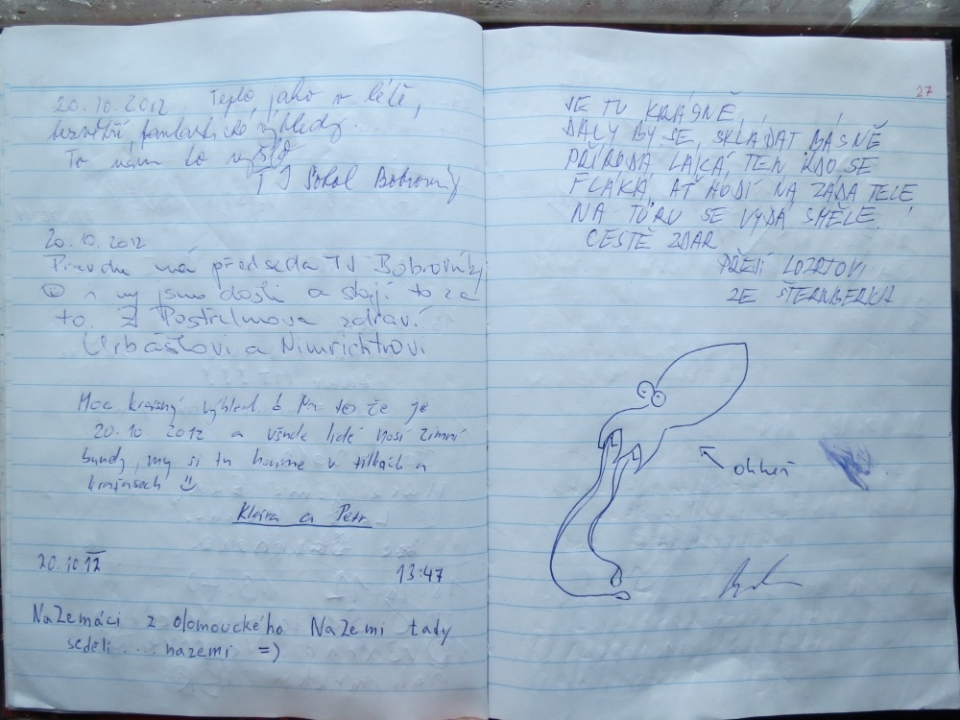 20.10.2012 Teplo, jako v létě,
bezvětří, fantastické výhledy.
To nám to vyšlo
TJ Sokol Bobrovníky
20.10.2012
Pravdu má předseda TJ Bobrovníky
☺ my jsme došli a stojí to za
to. Z Postřelmova zdraví
Urbáškovi a Nimrichtrovi
Moc krásný výhled Na to že je
20.10.2012 a všude lidé nosí zimní
bundy, my si tu hovíme v tílkách a
kraťasech ☺
Klára a Petr
20.10 12 13:47
NaZemáci z olomouckého NaZemi tady
seděli ... nazemi =)
27
JE TU KRÁSNĚ,
DALY BY SE SKLÁDAT BÁSNĚ
PŘÍRODA LÁKÁ, TEN KDO SE
FLÁKÁ, AŤ HODÍ NA ZÁDA TELE
NA TÚRU SE VYDÁ SMĚLE.
CESTĚ ZDAR
PŘEJÍ LOZRTOVI
ZE ŠTERNBERKA